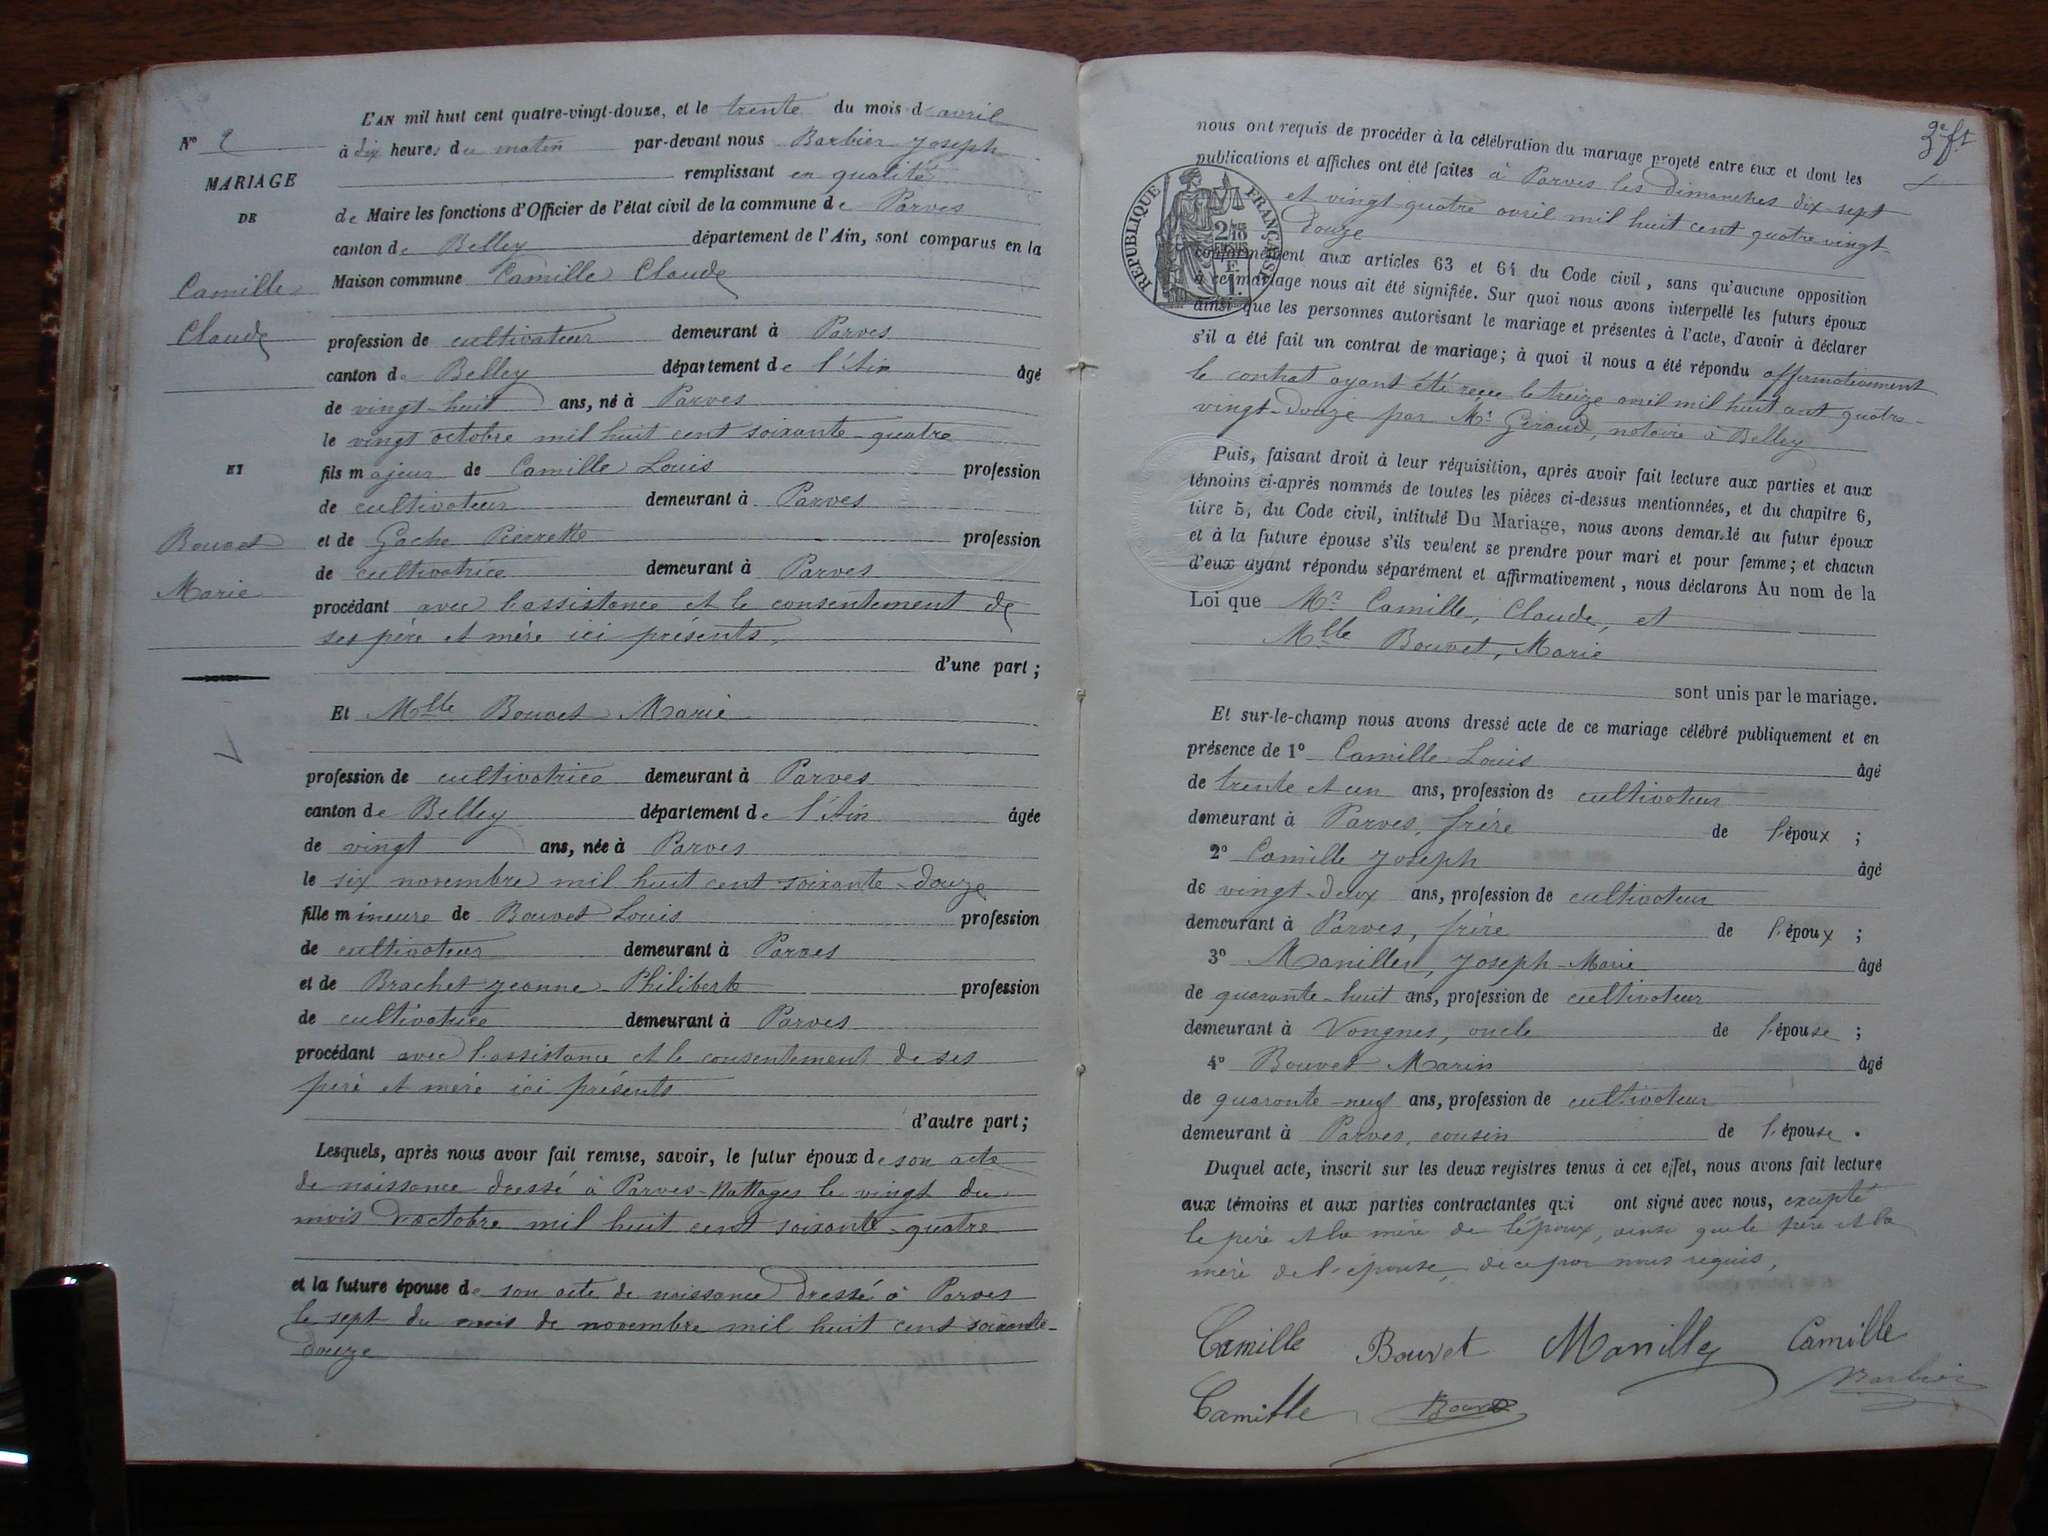 L'AN mil huit cent quatre-vingt-douze, et le trente du mois d'avril
à dix heures du matin par-devant nous Barbier Joseph
remplissant en qualité
de Maire les fonctions d'Officier de l'état civil de la commune de Parves
canton de Belley département de l'Ain, sont comparus en la
Maison commune Camille Claude
profession de cultivateur demeurant à Parves
canton de Belley département de l'Ain âgé
de vingt-huit ans, né à Parves
le vingt octobre mil huit cent soixante-quatre
fils majeur de Camille Louis profession
de cultivateur demeurant à Parves
et de Gache Pierrette profession
de cultivatrice demeurant à Parves
procédant avec l'assistance et le consentement de
ses père et mère ici présents,
d'une part ;
Et Mlle Bouvet Marie
profession de cultivatrice demeurant à Parves
canton de Belley département de l'Ain âgée
de vingt ans, née à Parves
le six novembre mil huit cent soixante-douze
fille mineure de Bouvet Louis profession
de cultivateur demeurant à Parves
et de Brachet Jeanne-Philiberte profession
de cultivatrice demeurant à Parves
procédant avec l'assistance et le consentement de ses
père et mère ici présents
d'autre part ;
Lesquels, après nous avoir fait remise, savoir, le futur époux de son acte
de naissance dressé à Parves-Nattages le vingt du
mois d'octobre mil huit cent soixante-quatre
et la future épouse de son acte de naissance dressé à Parves
le sept du mois de novembre mil huit cent soixante-
douze
No 2
MARIAGE
DE
Camille
Claude
ET
Bouvet
Marie
2e ft
nous ont requis de procéder à la célébration du mariage projeté entre eux et dont les
publications et affiches ont été faites à Parves les dimanches dix-sept
et vingt-quatre avril mil huit cent quatre-vingt-
douze
conformément aux articles 63 et 64 du Code civil, sans qu'aucune opposition
à ce mariage nous ait été signifiée. Sur quoi nous avons interpellé les futurs époux
ainsi que les personnes autorisant le mariage et présentes à l'acte, d'avoir à déclarer
s'il a été fait un contrat de mariage ; à quoi il nous a été répondu affirmativement
le contrat ayant été reçu le treize avril mil huit cent quatre-
vingt-douze par Me Giraud, notaire à Belley
RÉPUBLIQUE FRANÇAISE
2/10
EN SUS
1 F.
Puis, faisant droit à leur réquisition, après avoir fait lecture aux parties et aux
témoins ci-après nommés de toutes les pièces ci-dessus mentionnées, et du chapitre 6,
titre 5, du Code civil, intitulé Du Mariage, nous avons demandé au futur époux
et à la future épouse s'ils veulent se prendre pour mari et pour femme ; et chacun
d'eux ayant répondu séparément et affirmativement, nous déclarons Au nom de la
Loi que Mr Camille, Claude, et
Mlle Bouvet, Marie
sont unis par le mariage.
Et sur-le-champ nous avons dressé acte de ce mariage célébré publiquement et en
présence de 1o Camille Louis âgé
de trente et un ans, profession de cultivateur
demeurant à Parves, frère de l'époux ;
2o Camille Joseph âgé
de vingt-deux ans, profession de cultivateur
demeurant à Parves, frère de l'époux ;
3o Maniller, Joseph-Marie âgé
de quarante-huit ans, profession de cultivateur
demeurant à Vongnes, oncle de l'épouse ;
4o Bouvet Marin âgé
de quarante-neuf ans, profession de cultivateur
demeurant à Parves, cousin de l'épouse.
Duquel acte, inscrit sur les deux registres tenus à cet effet, nous avons fait lecture
aux témoins et aux parties contractantes qui ont signé avec nous, excepté
le père et la mère de l'époux, ainsi que le père et la
mère de l'épouse, de ce par nous requis,
Camille Bouvet Maniller Camille
Camille Bouvet Barbier